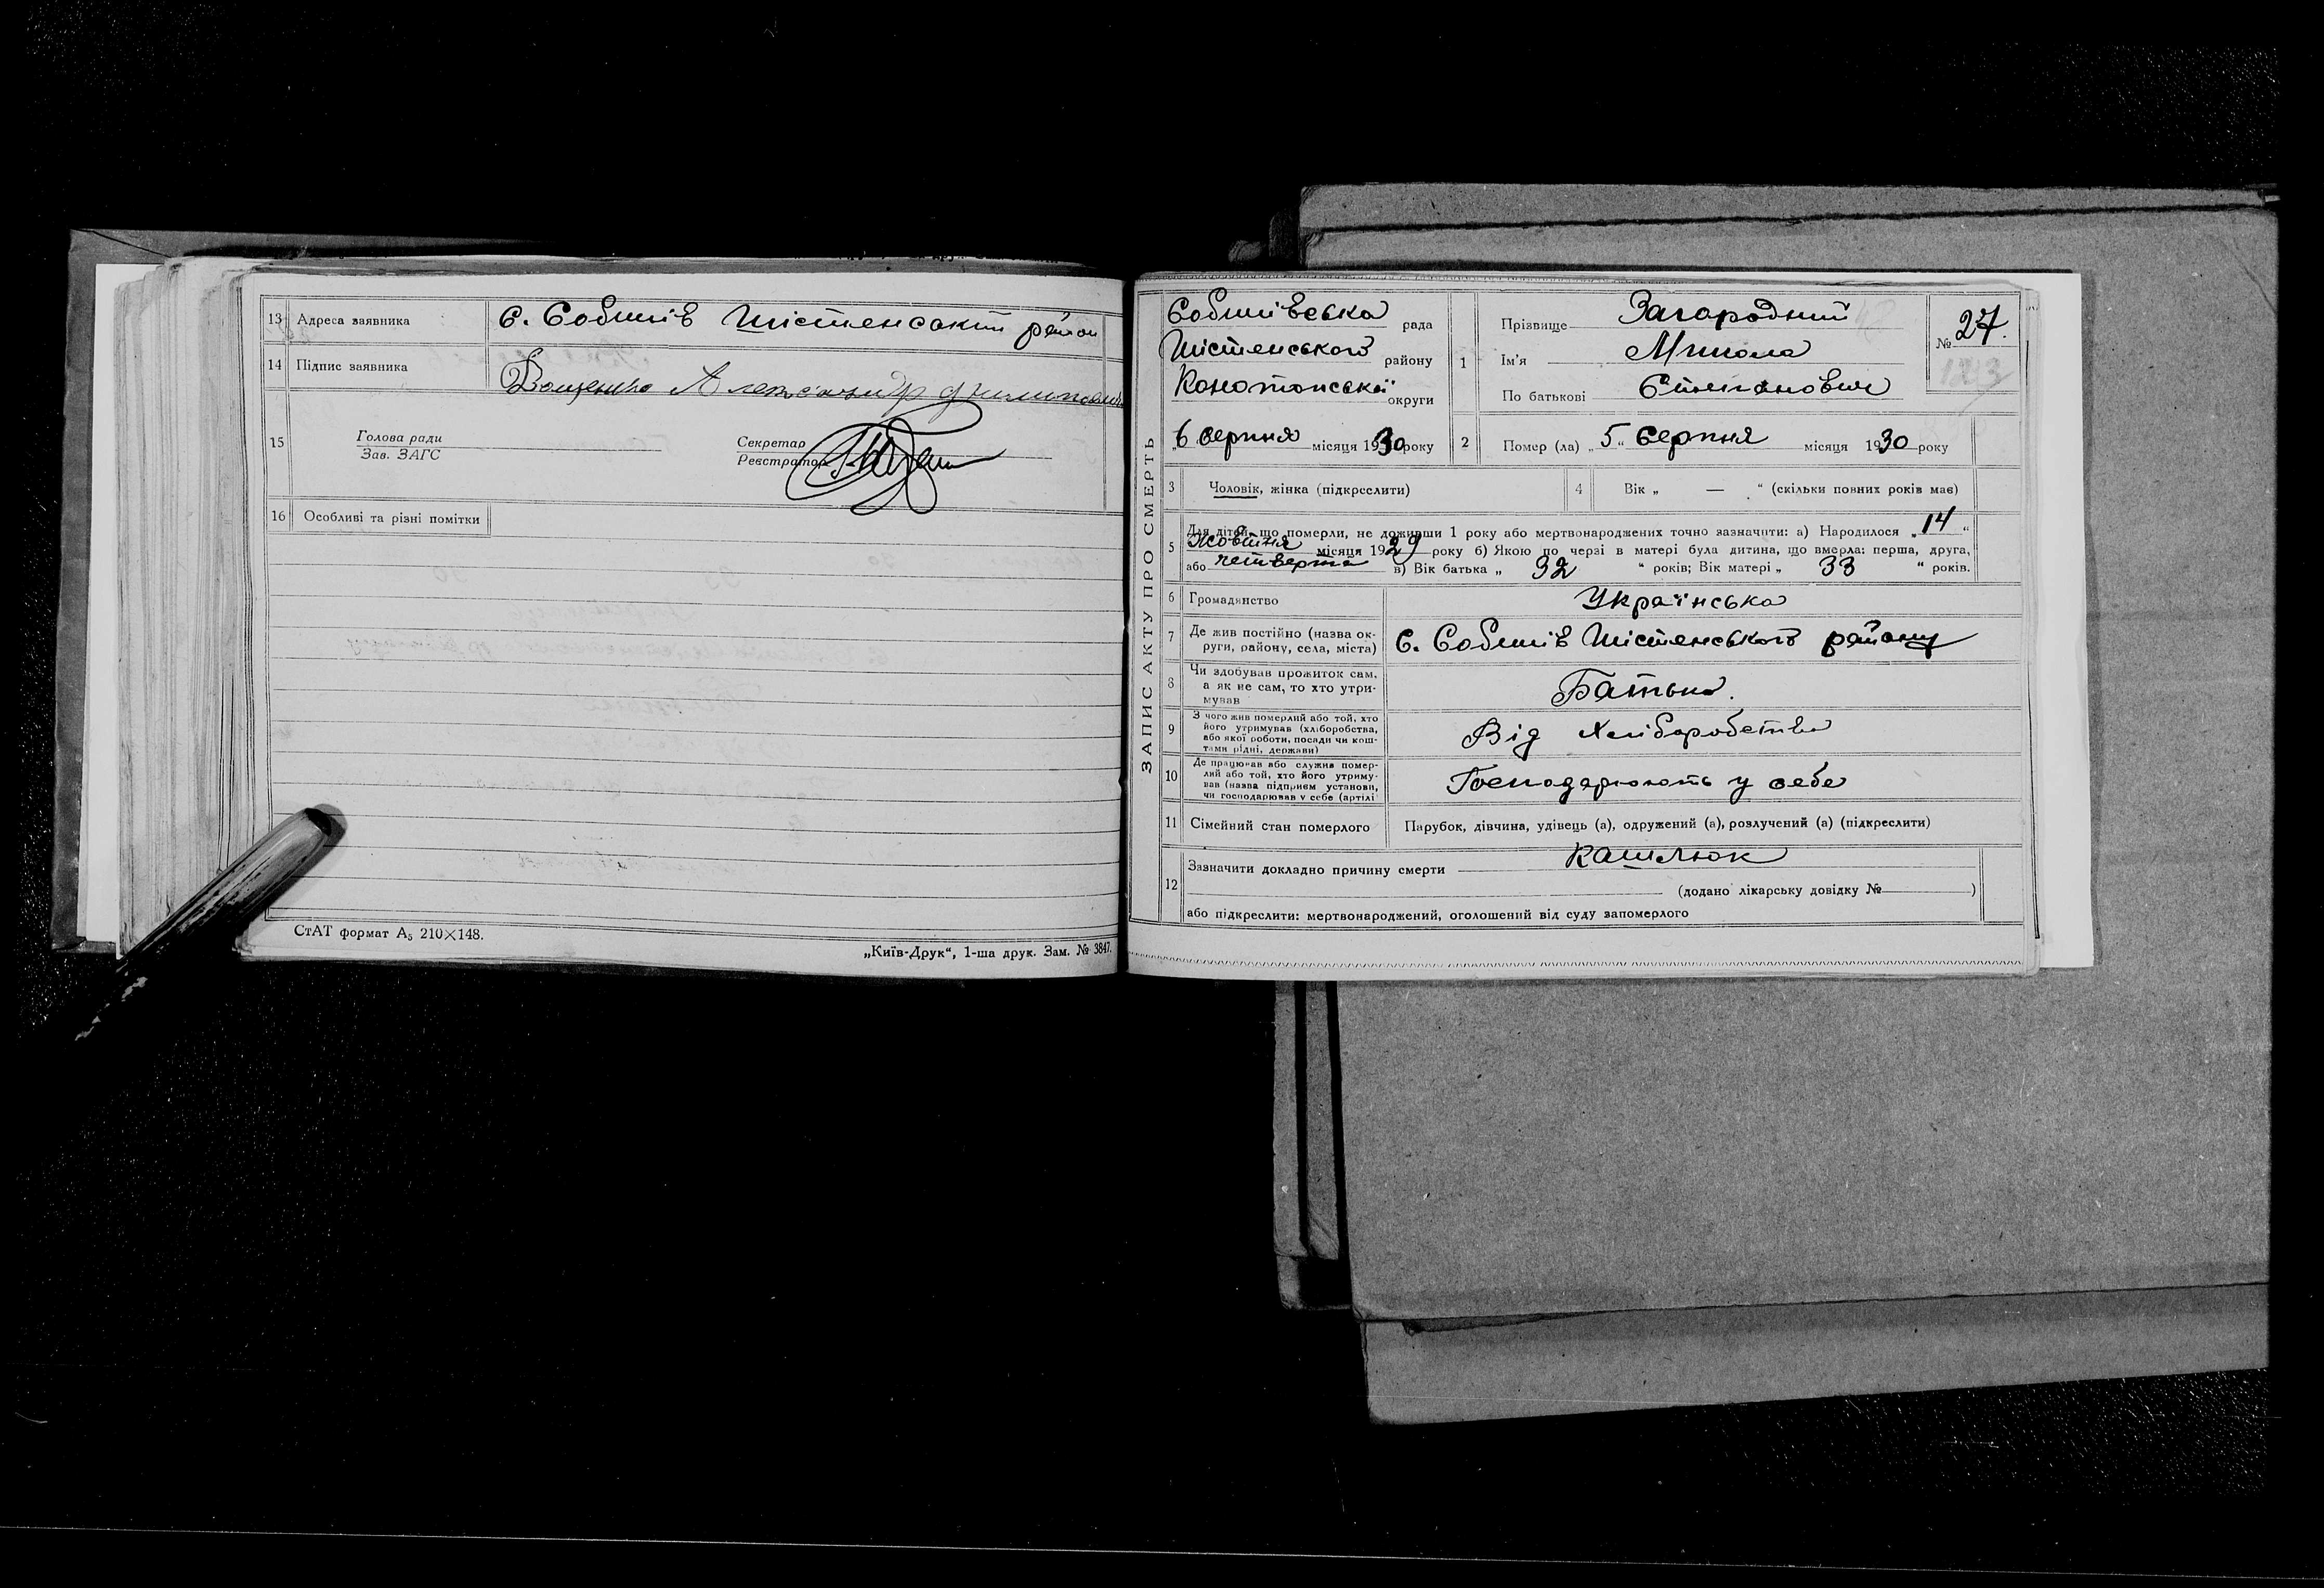 13 Адреса заявника С. Собичів Шістенський район
14 Підпис заявника Ващенко Александр
15 Голова ради
Зав. ЗАГС
Секретар
Реєстратор
16 Особливі та різні помітки
СтАТ формат А₅ 210×148.
„Київ-Друк“, 1-ша друк. Зам. № 3847.
ЗАПИС АКТУ ПРО СМЕРТЬ
Собичівська рада
Шістенського району
Конотопської округи
„6 серпня місяця 1930 року
1 Прізвище Загородний
Ім'я Микола
По батькові Степанович
№ 27.
123
2 Помер (ла) „5“ серпня місяця 1930 року
3 Чоловік, жінка (підкреслити)
4 Вік „ — “ (скільки повних років мав)
5 Для дітей, що померли, не доживши 1 року або мертвонароджених точно зазначити: а) Народилося „14“
Жовтня місяця 1929 року б) Якою по черзі в матері була дитина, що вмерла: перша, друга,
або четверта в) Вік батька „ 32 “ років; Вік матері „ 33 “ років.
6 Громадянство Українська
7 Де жив постійно (назва ок-
руги, району, села, міста) С. Собичів Шістенського району
8 Чи здобував прожиток сам,
а як не сам, то хто утри-
мував Батько.
9 З чого жив померлий або той, хто
його утримував (хліборобства,
або якої роботи, посади чи кош-
тами рідні, держави) Від Хліборобства
10 Де працював або служив помер-
лий або той, хто його утриму-
вав (назва підприєм установи,
чи господарював у себе (артілі Господарюють у себе
11 Сімейний стан померлого Парубок, дівчина, удівець (а), одружений (а), розлучений (а) (підкреслити)
12 Зазначити докладно причину смерти Кашлюк
(додано лікарську довідку № )
або підкреслити: мертвонароджений, оголошений від суду запомерлого